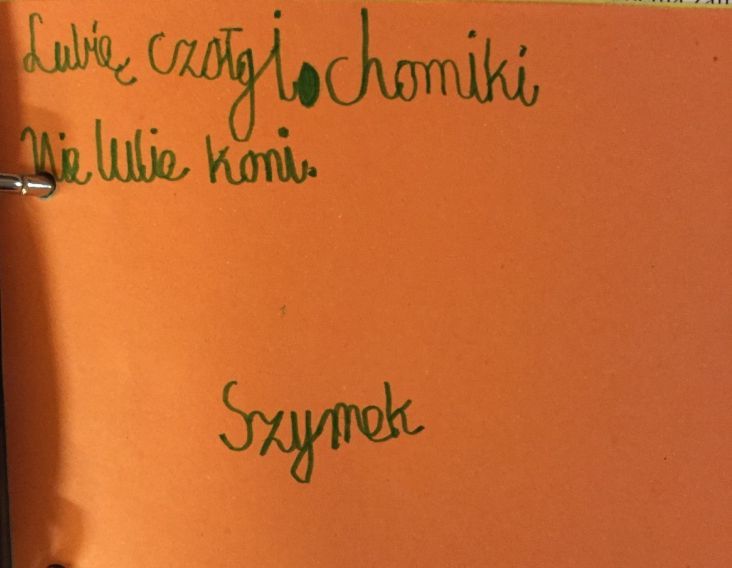 Lubię czołgi. chomiki
Nie lubie koni.
Szymek